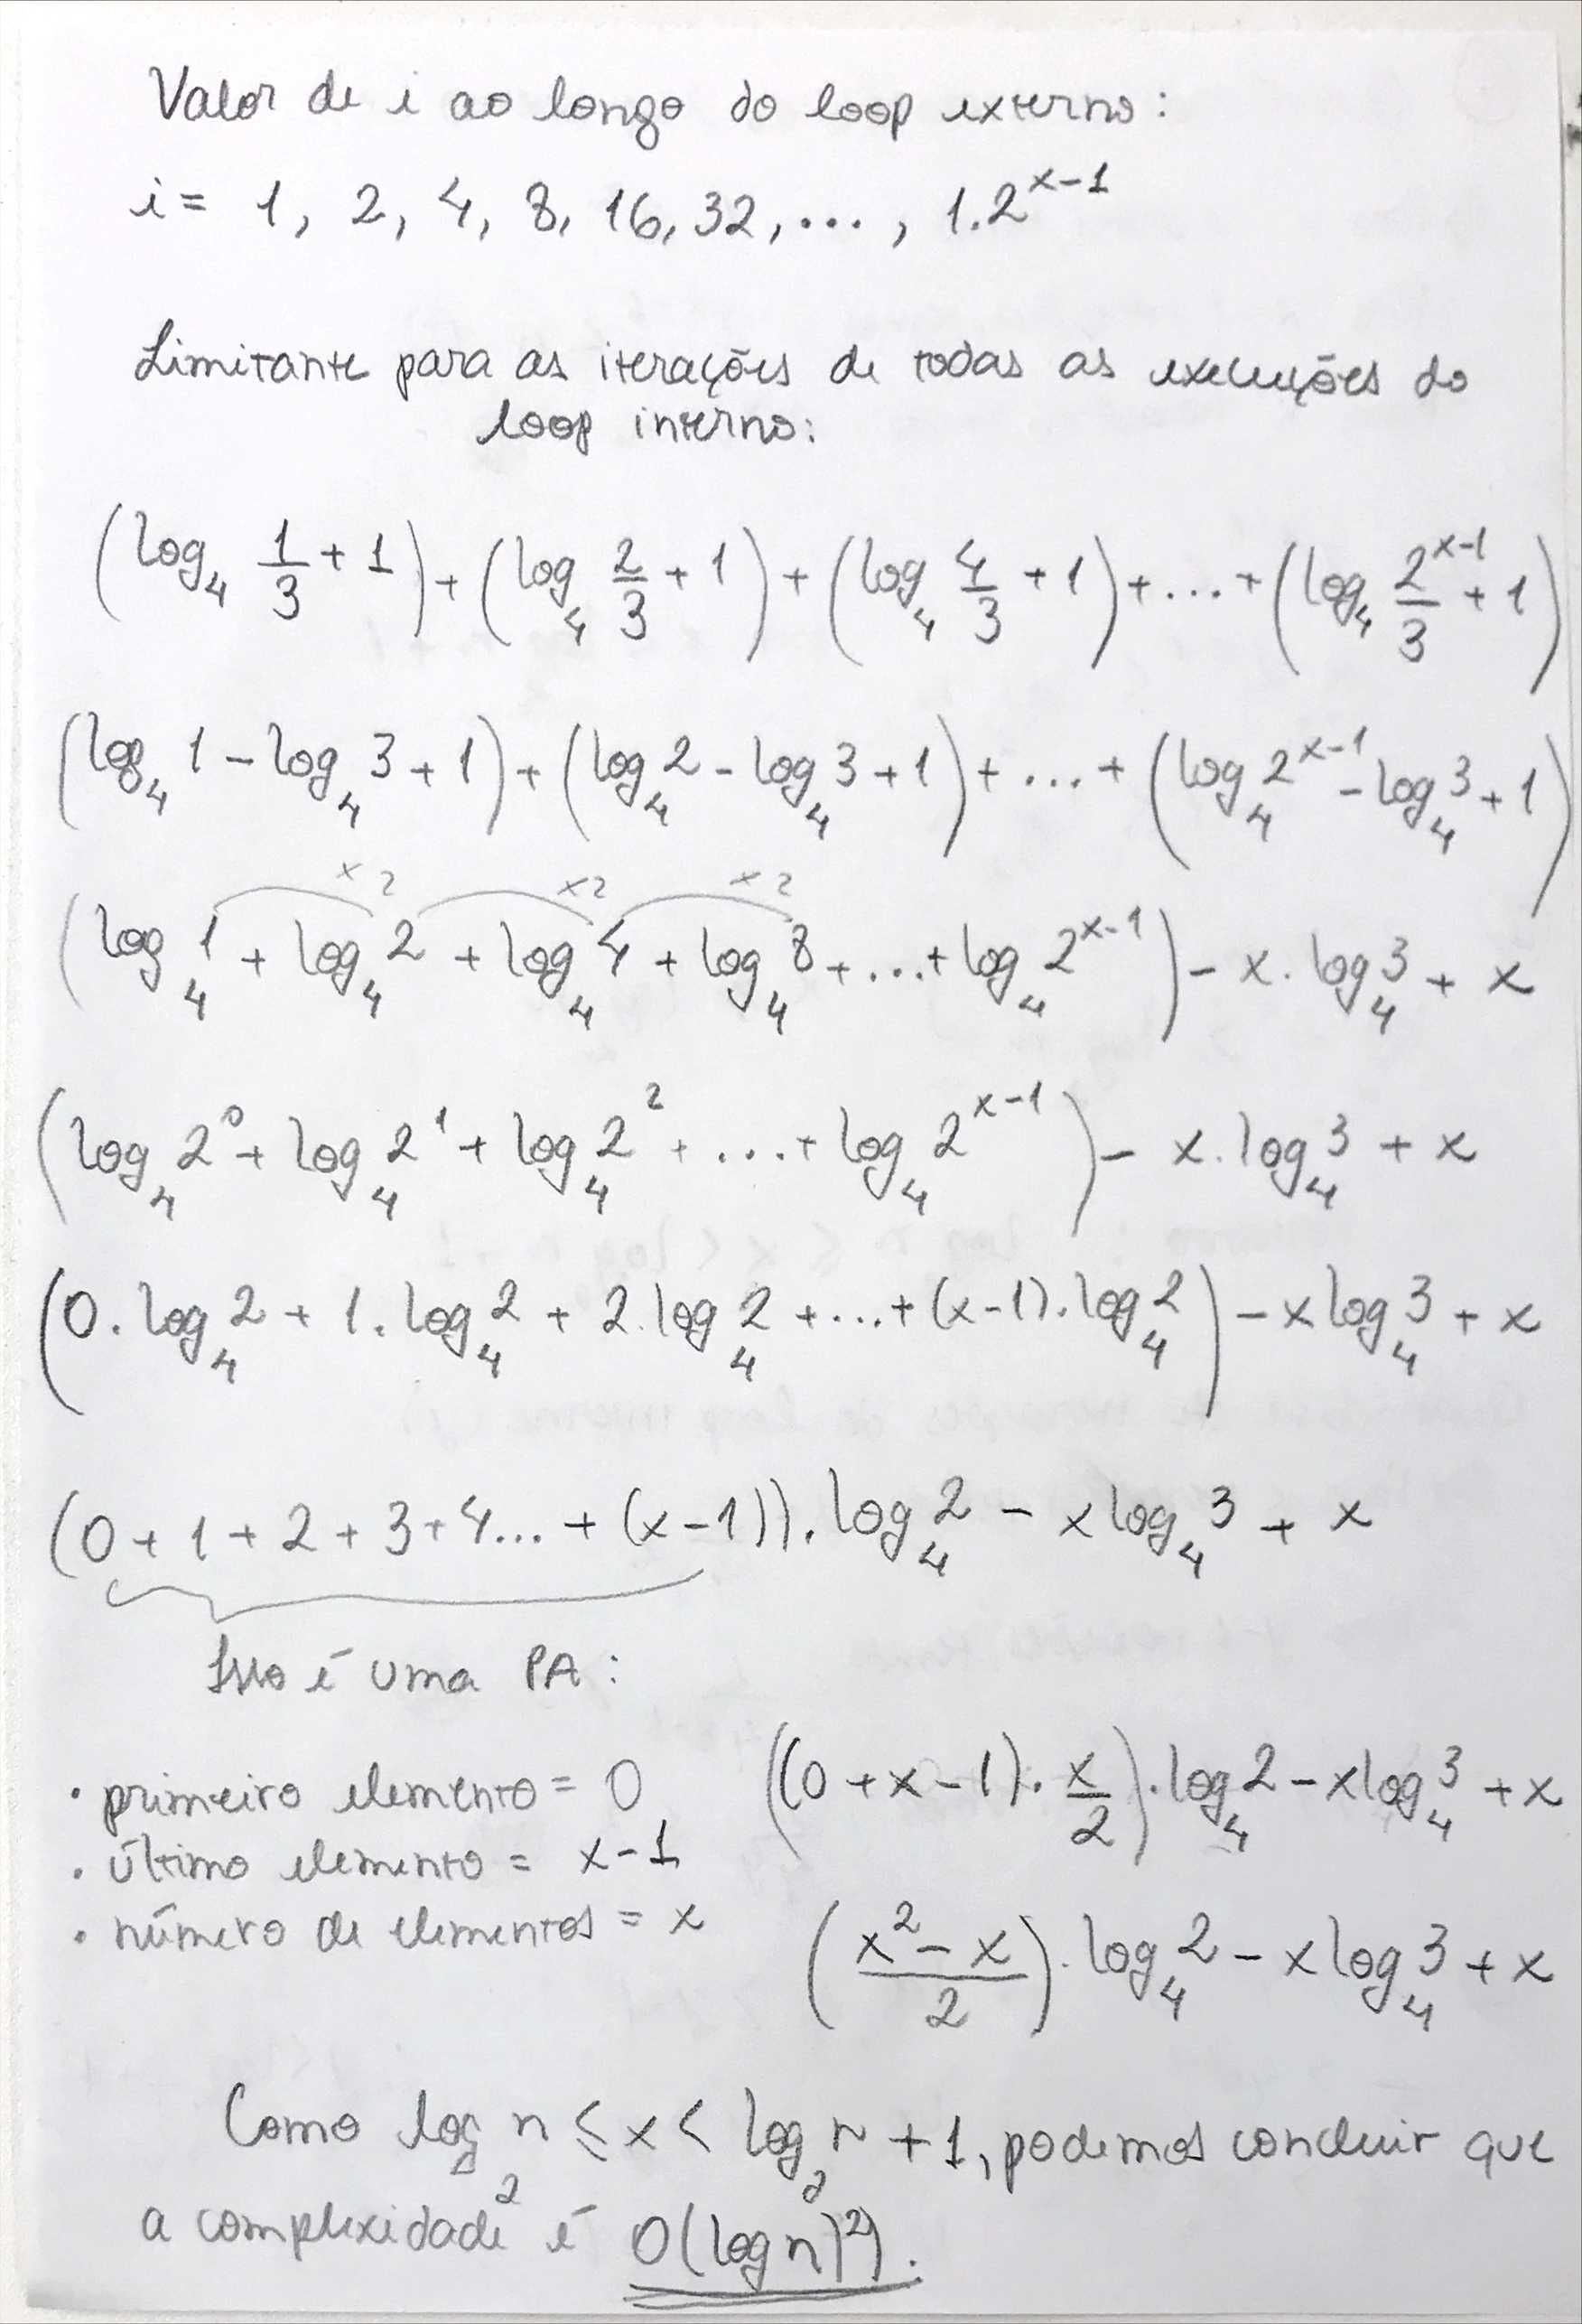 Valor de i ao longo do loop externo:
i = 1, 2, 4, 8, 16, 32, ..., 1.2^(x-1)
Limitante para as iterações de todas as execuções do
loop interno:
(log₄ 1/3 + 1) + (log₄ 2/3 + 1) + (log₄ 4/3 + 1) + ... + (log₄ 2^(x-1)/3 + 1)
(log₄ 1 - log₄ 3 + 1) + (log₄ 2 - log₄ 3 + 1) + ... + (log₄ 2^(x-1) - log₄ 3 + 1)
x2 x2 x2
(log₄ 1 + log₄ 2 + log₄ 4 + log₄ 8 + ... + log₄ 2^(x-1)) - x. log₄ 3 + x
(log₄ 2⁰ + log₄ 2¹ + log₄ 2² + ... + log₄ 2^(x-1)) - x. log₄ 3 + x
(0. log₄ 2 + 1. log₄ 2 + 2. log₄ 2 + ... + (x-1). log₄ 2) - x log₄ 3 + x
(0 + 1 + 2 + 3 + 4... + (x-1)). log₄ 2 - x log₄ 3 + x
Isso é uma PA:
• primeiro elemento = 0
• último elemento = x-1
• número de elementos = x
((0 + x - 1). x/2). log₄ 2 - x log₄ 3 + x
((x² - x)/2). log₄ 2 - x log₄ 3 + x
Como log₂ n ≤ x < log₂ n + 1, podemos concluir que
a complexidade é O(log n)²).